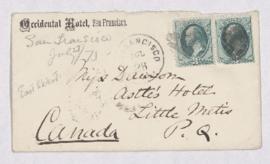 Occidental Hotel, San Francisco.
San Francisco
FRANCISCO
Miss Dawson
Astle's Hotel
Little Metis
Canada P. Q.